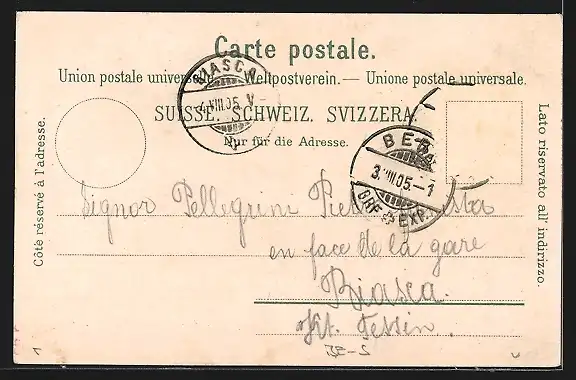 Carte postale.
Union postale universelle. — Weltpostverein. — Unione postale universale.
SUISSE. SCHWEIZ. SVIZZERA.
Nur für die Adresse.
Côté réservé à l'adresse.
Lato riservato all' indirizzo.
BIASCA
4.VIII.05. V
3.VIII.05.-1
BRF. EXP.
Signor Pellegrini
en face de la gare
Biasca
Kt. Tessin.